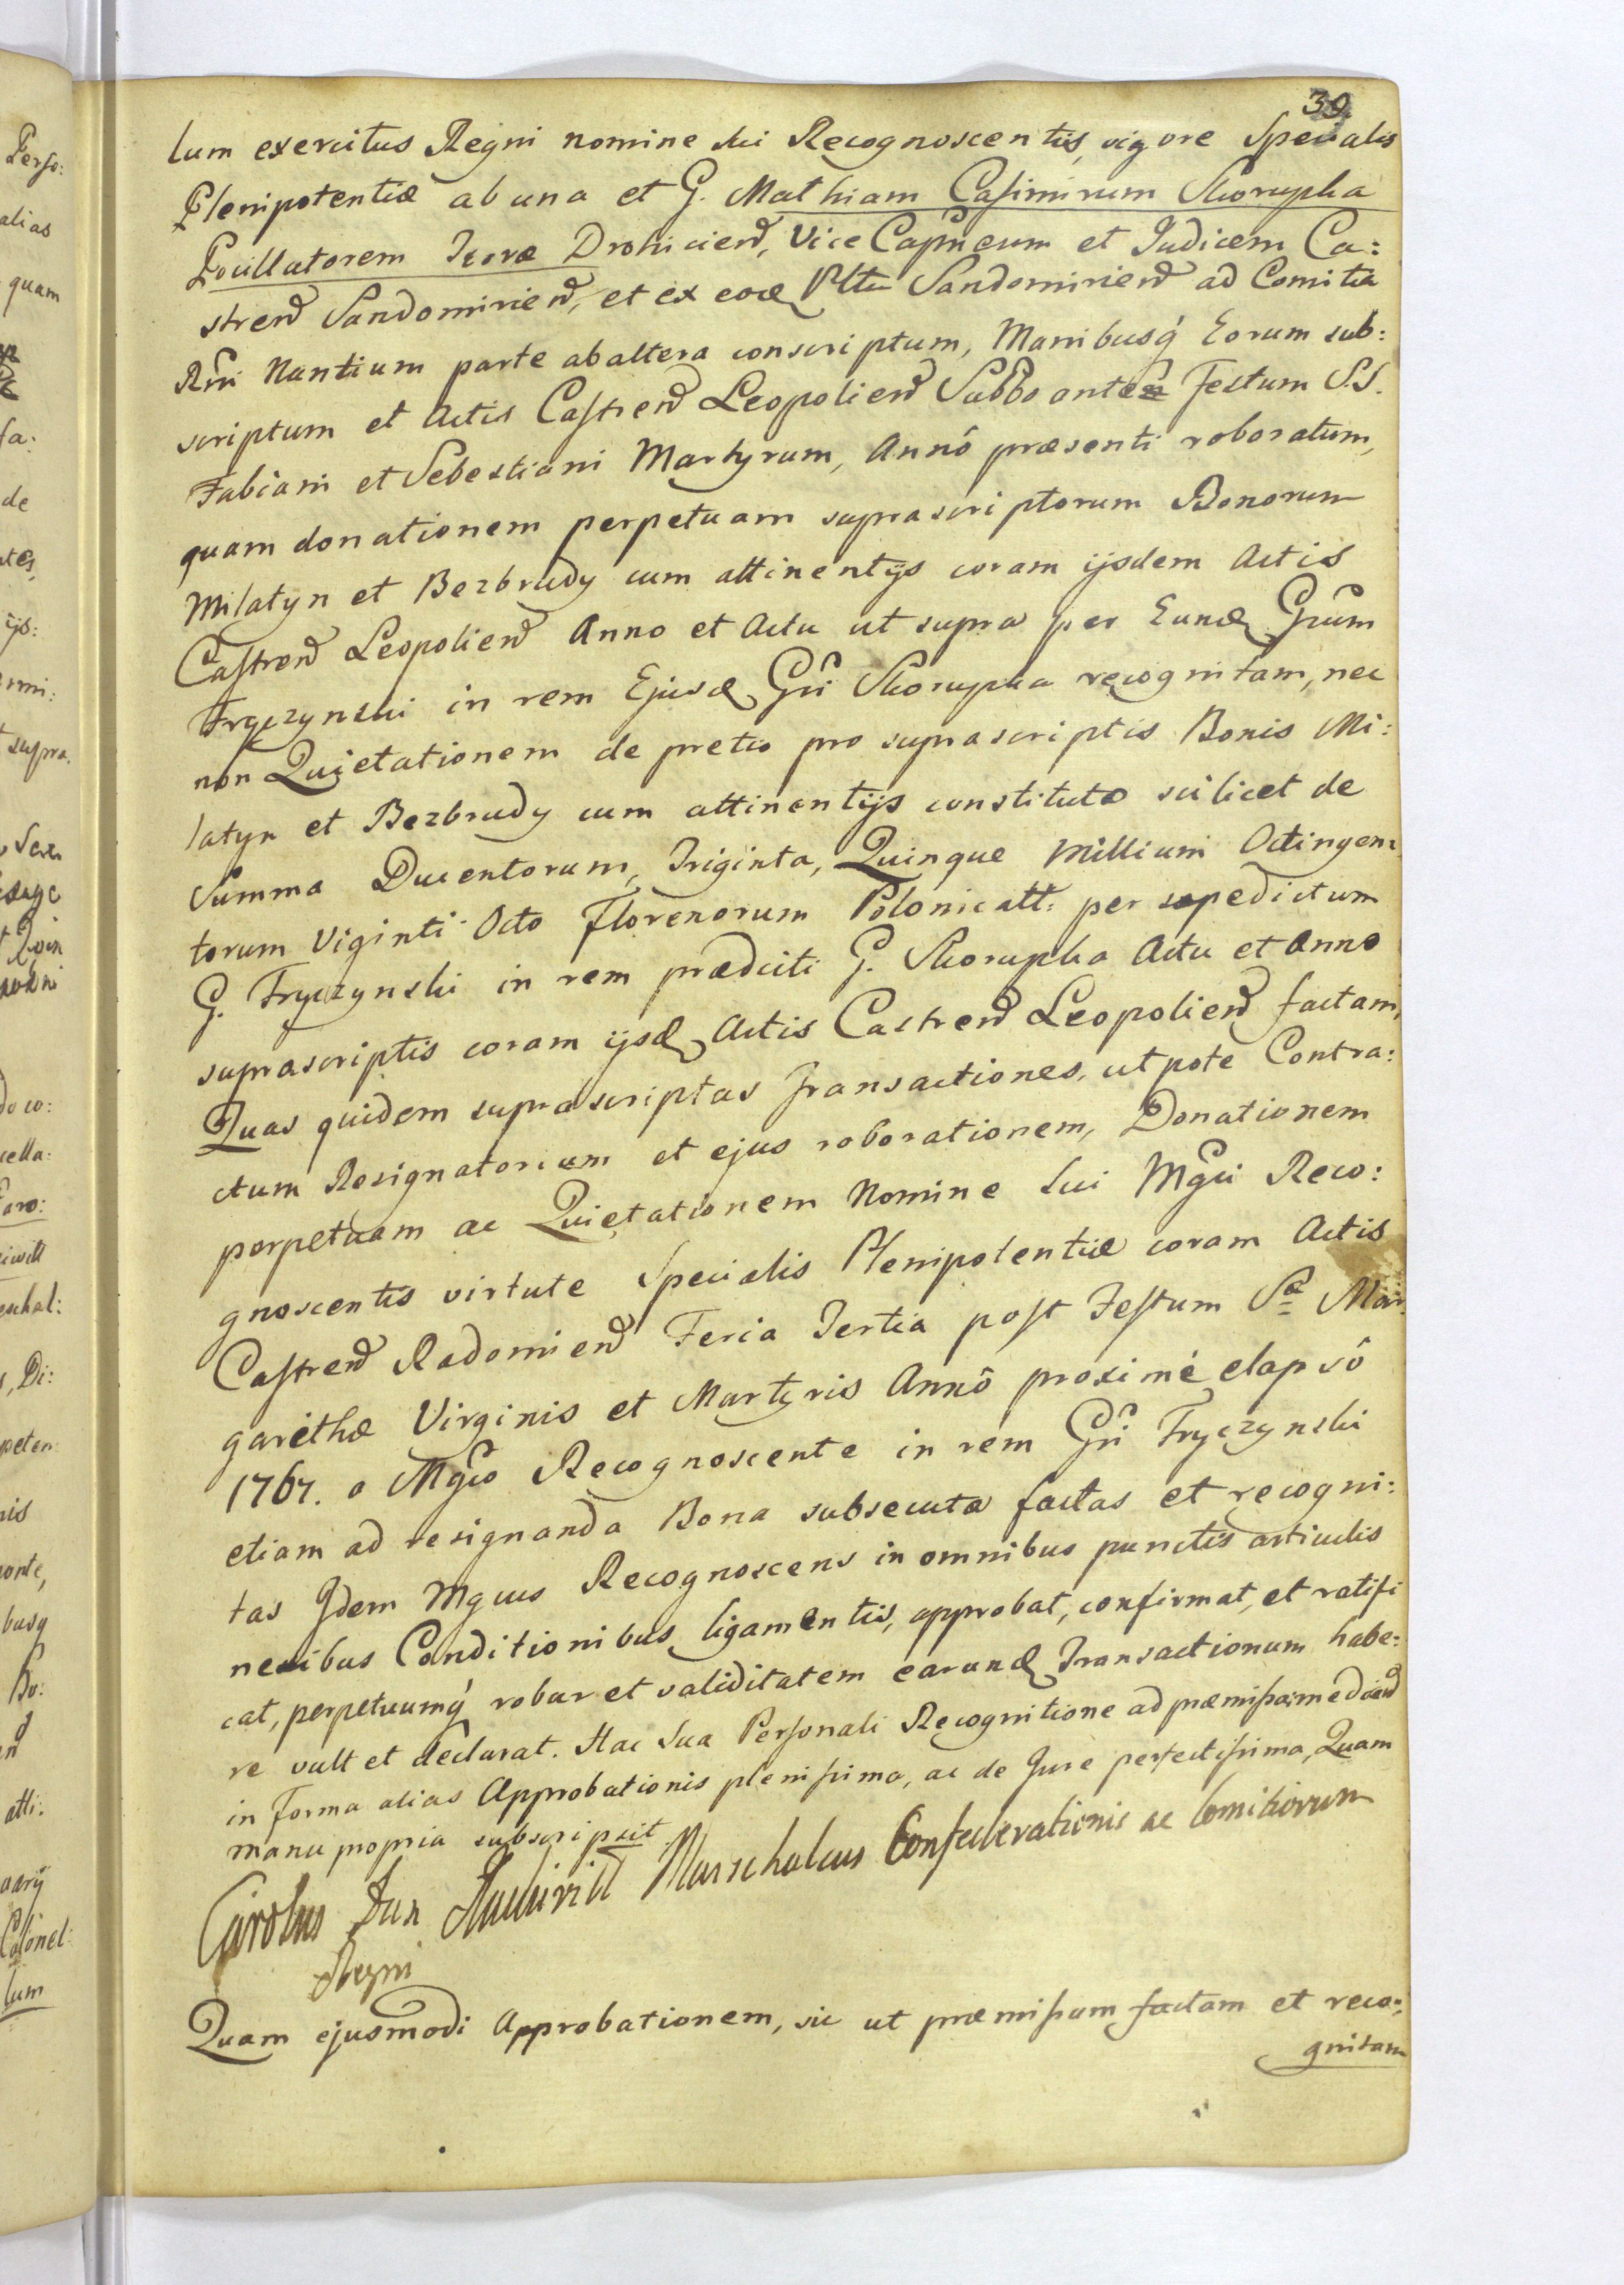 39
lum exercitus Regni nomine sui Recognoscentis, vigore Specialis
Plenipotentiæ ab una et G. Mathiam Casimirum Skorupka
Pocillatorem Terræ Drohicien, Vice Capneum et Judicem Ca:
stren Sandomirien, et ex eod Pltu Sandomirien ad Comitia
Rni Nuntium parte ab altera conscriptum, Manibusq Eorum sub:
scriptum et Actis Castren Leopolien Sabbo ante Festum S.S.
Fabiani et Sebestiani Martyrum, Annô præsenti roboratum,
quam donationem perpetuam suprascriptorum Bonorum
Milatyn et Bezbrudy cum attinentijs coram ijsdem Actis
Castren Leopolien Anno et Actu ut supra per Eund Grum
Fryczynski in rem Ejusd Gri Skorupka recognitam, nec
non Quietationem de pretio pro suprascriptis Bonis Mi:
latyn et Bezbrudy cum attinentijs constituto scilicet de
Summa Ducentorum, Triginta, Quinque Millium Octingen:
torum Viginti Octo Florenorum Polonicall: per sæpedictum
G. Fryczynski in rem prædicti G. Skorupka Actu et Anno
suprascriptis coram ijsd Actis Castren Leopolien factam,
Quas quidem suprascriptas Transactiones, utpote Contra:
ctum Resignatorium et ejus roborationem, Donationem
perpetuam ac Quietationem Nomine sui Mgci Reco:
gnoscentis virtute Specialis Plenipotentiæ coram Actis
Castren Radomien Feria Tertia post Festum Sæ Mar:
garethæ Virginis et Martyris Annô proximé elapsô
1767. a Mgco Recognoscente in rem Gri Fryczynski
etiam ad resignanda Bona subsecuta factas et recogni:
tas Idem Mgcus Recognoscens in omnibus punctis articulis
nexibus Conditionibus ligamentis, approbat, confirmat, et ratifi
cat, perpetuumq robur et validitatem earund Transactionum habe:
re vult et declarat. Hac Sua Personali Recognitione ad præmissa
in Forma alias Approbationis plenissima, ac de Jure perfectissima, Quam
manu propria subscripsit.
Carolus Dux Radziwill Marschalcus Confederationis ac Comitiorum
Regni
Quam ejusmodi Approbationem, sic ut præmissum factam et reco:
gnitam